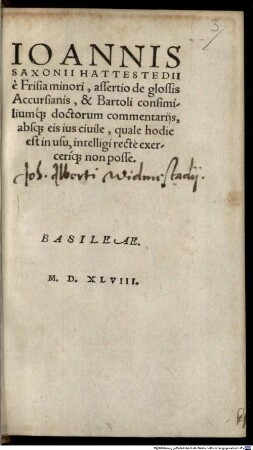 3
IOANNIS
SAXONII HATTESTEDII
è Frisia minori, assertio de glossis
Accursianis, & Bartoli consimi-
liumq́; doctorum commentarijs,
absq́; eis ius ciuile, quale hodie
est in usu, intelligi rectè exer-
ceriq́; non posse.
Joh. Alberti Widmestadij.
BASILEAE.
M. D. XLVIII.